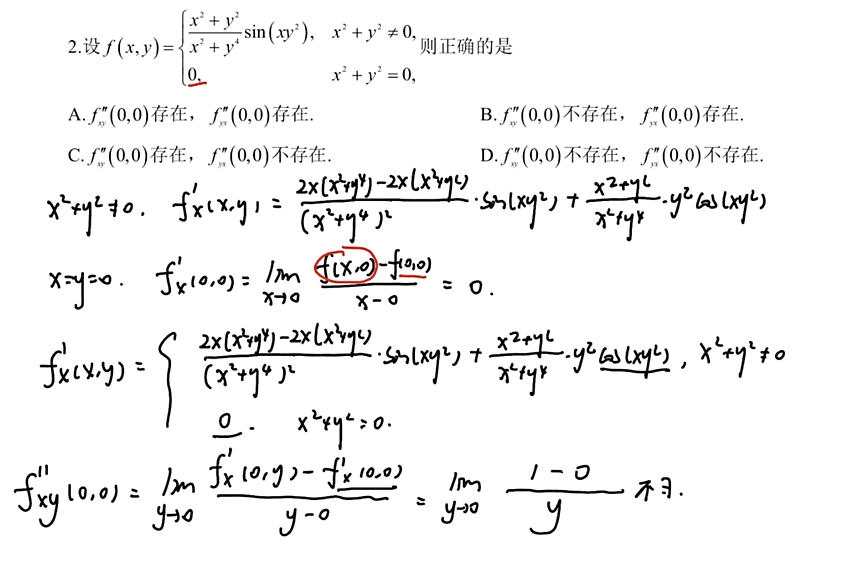 2.设 f(x,y)={ (x²+y²)/(x²+y⁴) sin(xy²), x²+y²≠0, 0, x²+y²=0, 则正确的是
A. f″xy(0,0)存在，f″yx(0,0)存在. B. f″xy(0,0)不存在，f″yx(0,0)存在.
C. f″xy(0,0)存在，f″yx(0,0)不存在. D. f″xy(0,0)不存在，f″yx(0,0)不存在.
x²+y²≠0. f′x(x,y) = (2x(x²+y⁴)-2x(x²+y²))/(x²+y⁴)² · sin(xy²) + (x²+y²)/(x²+y⁴) · y² cos(xy²)
x=y=0. f′x(0,0) = lim x→0 (f(x,0)-f(0,0))/(x-0) = 0.
f′x(x,y) = { (2x(x²+y⁴)-2x(x²+y²))/(x²+y⁴)² · sin(xy²) + (x²+y²)/(x²+y⁴) · y² cos(xy²), x²+y²≠0
0. x²+y²=0.
f″xy(0,0) = lim y→0 (f′x(0,y)-f′x(0,0))/(y-0) = lim y→0 (1-0)/y 不∃.